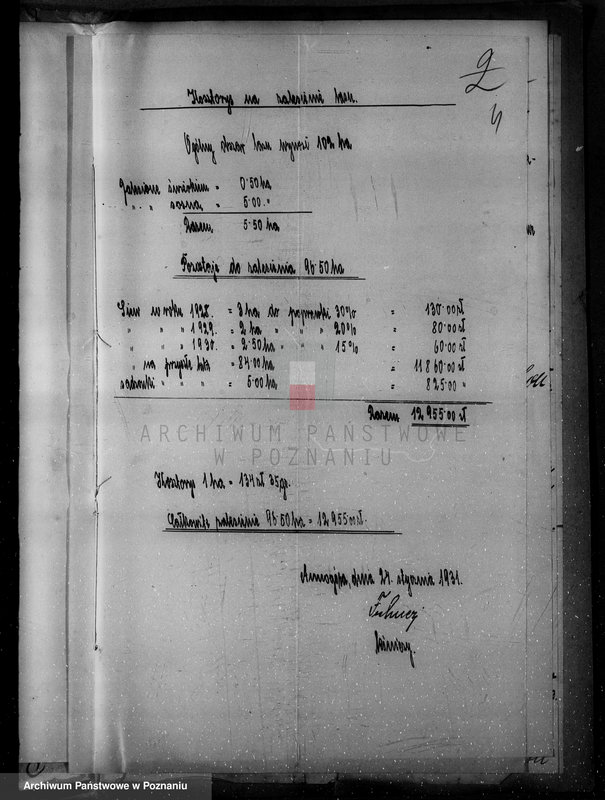 9
2
4
Kosztorys na zalesienie lasu.
Ogólny obszar lasu wynosi 102 ha
Zalesione świerkiem = 0·50 ha
" " sosną = 5·00 "
Razem 5·50 ha
Pozostaje do zalesienia 96·50 ha
Siew w roku 1928. = 3 ha do poprawki 30% = 130·00 zł
" " 1929. = 2 ha " " 20% = 80·00 zł
" " 1930. = 2·50 ha " " 15% = 60·00 zł
" na przyszłe lata = 84·00 ha = 11860·00 zł
sadzonki " " " = 5·00 ha = 825·00 "
Razem 12955·00 zł
ARCHIWUM PAŃSTWOWE
W POZNANIU
Kosztorys 1 ha = 134 zł 35 gr.
Całkowite zalesienie 96·50 ha = 12955·00 zł.
dnia 24. stycznia 1931.
leśniczy.
Archiwum Państwowe w Poznaniu